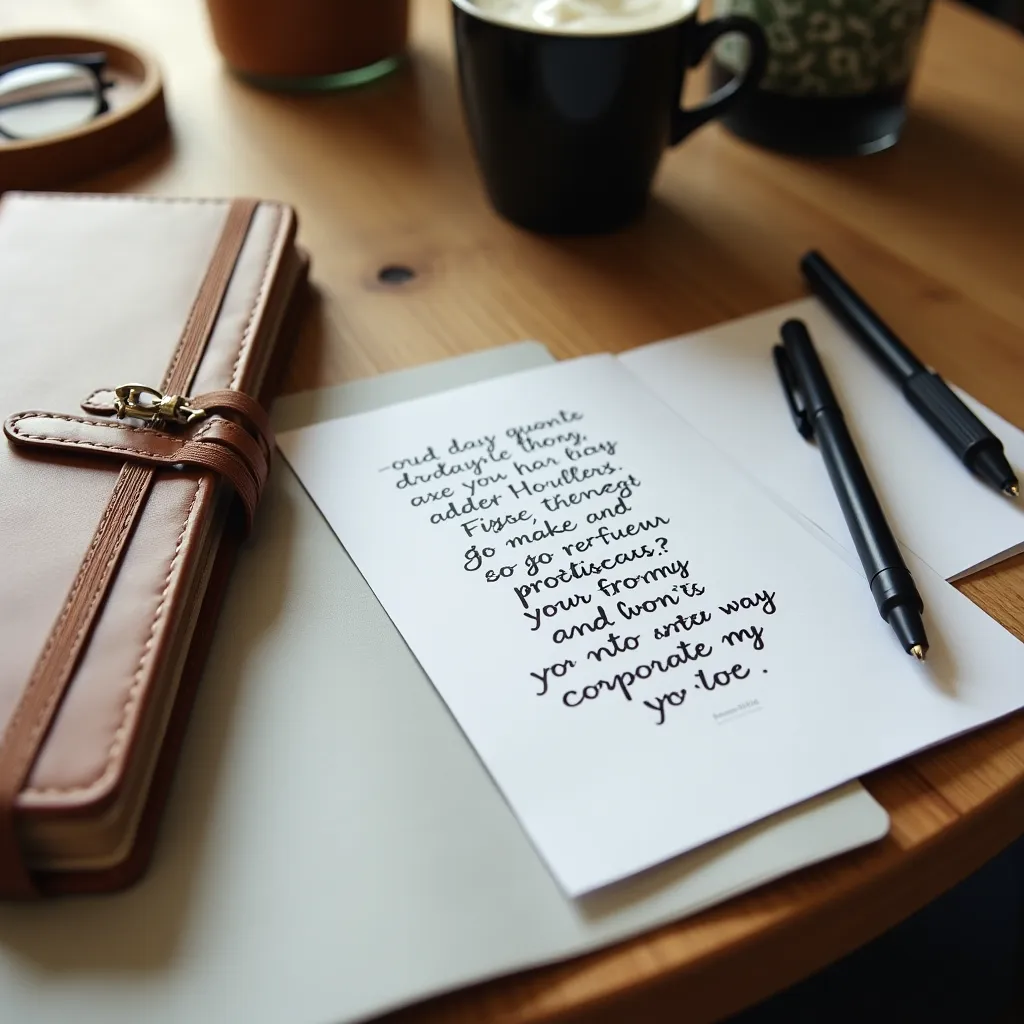 -oud day quonte
drdaysie thony,
axe you han biay
adder Houllers.
Figse, thenezgt
go make and
so go rerfueur
protliscaus.?
your fromy
and won'ts
yor nto sntee way
corporate my
yo·loe .